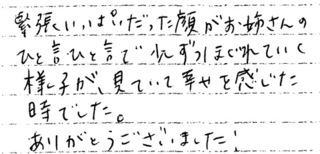 緊張いっぱいだった顔がお姉さんの
ひと言ひと言で少しずつほぐれていく
様子が、見ていて幸せを感じた
時でした。
ありがとうございました!